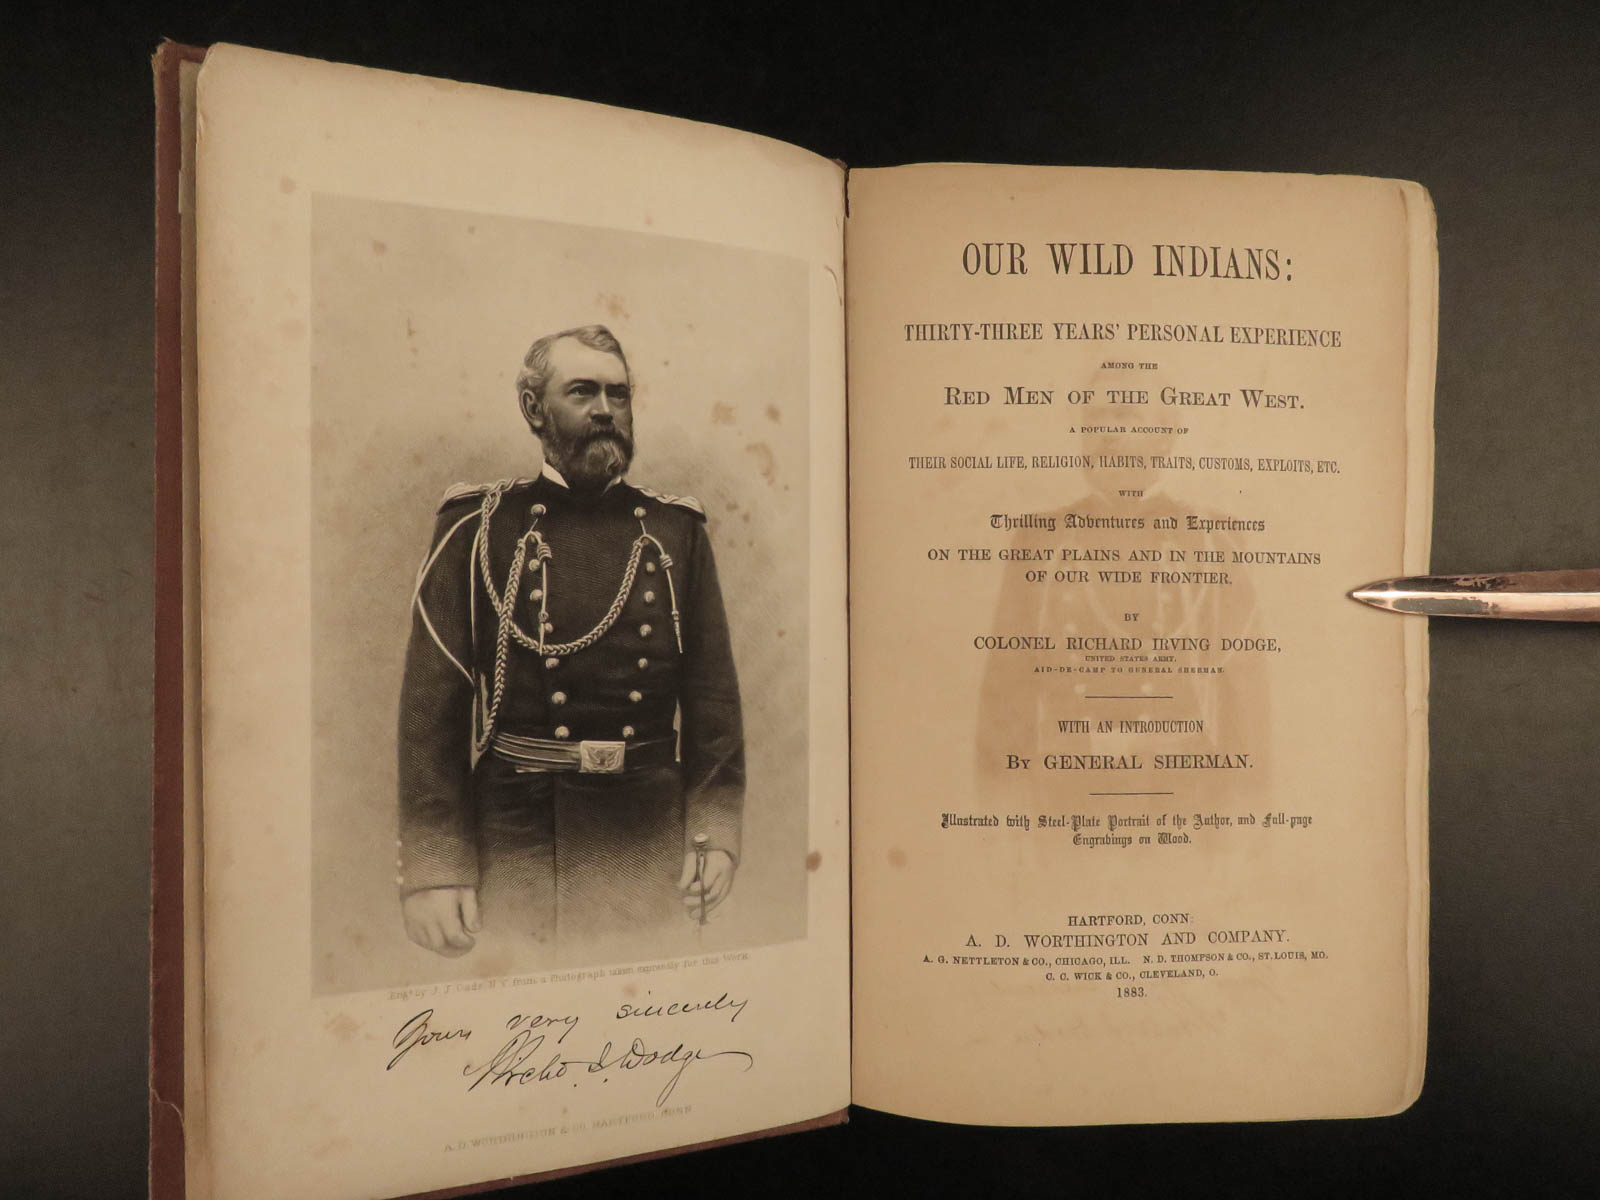 Eng'd by J. J. Cade N.Y. from a Photograph taken expressly for this Work.
Yours very sincerely
Richd. I. Dodge
A. D. WORTHINGTON & CO. HARTFORD, CONN
OUR WILD INDIANS:
THIRTY-THREE YEARS' PERSONAL EXPERIENCE
AMONG THE
RED MEN OF THE GREAT WEST.
A POPULAR ACCOUNT OF
THEIR SOCIAL LIFE, RELIGION, HABITS, TRAITS, CUSTOMS, EXPLOITS, ETC.
WITH
Thrilling Adventures and Experiences
ON THE GREAT PLAINS AND IN THE MOUNTAINS
OF OUR WIDE FRONTIER.
BY
COLONEL RICHARD IRVING DODGE,
UNITED STATES ARMY,
AID-DE-CAMP TO GENERAL SHERMAN.
WITH AN INTRODUCTION
BY GENERAL SHERMAN.
Illustrated with Steel-Plate Portrait of the Author, and Full-page
Engravings on Wood.
HARTFORD, CONN:
A. D. WORTHINGTON AND COMPANY.
A. G. NETTLETON & CO., CHICAGO, ILL. N. D. THOMPSON & CO., ST. LOUIS, MO.
C. C. WICK & CO., CLEVELAND, O.
1883.